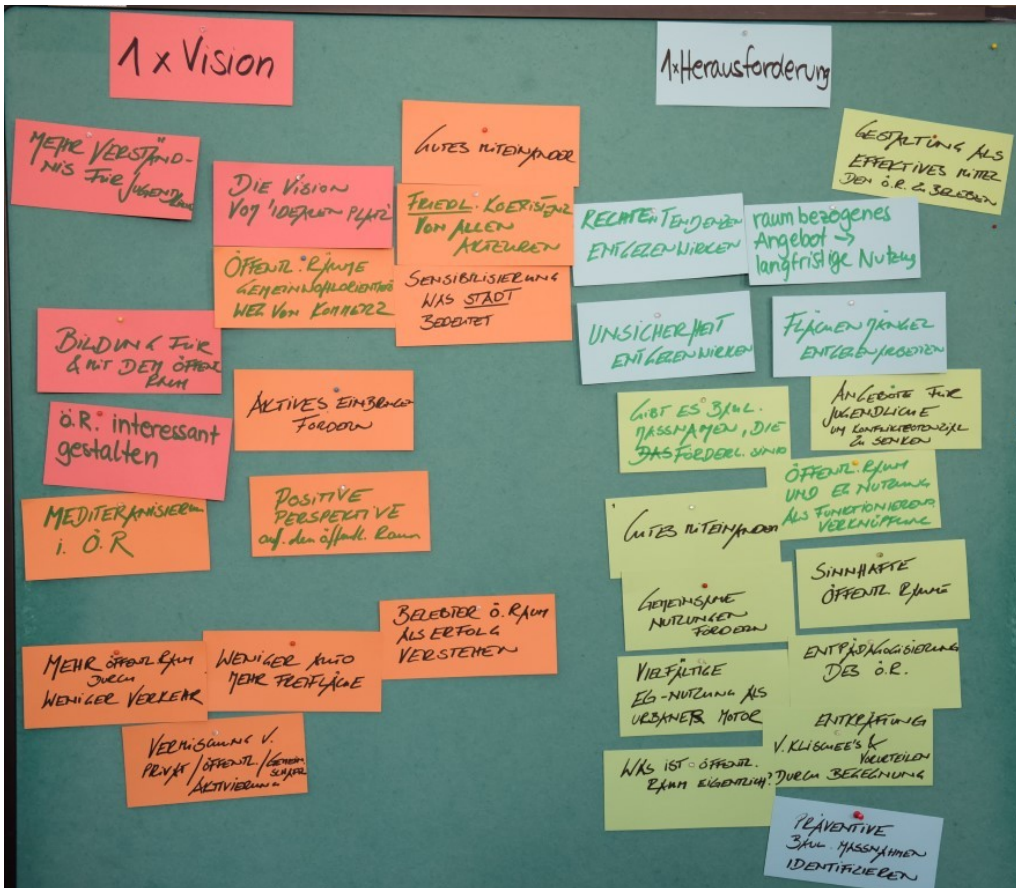 1 x Vision
MEHR VERSTÄND-
NIS FÜR /
DIE VISION
VOM 'IDEALEN PLATZ'
GUTES MITEINANDER
FRIEDL. KOEXISTENZ
VON ALLEN
AKTEUREN
ÖFFENTL. RÄUME
GEMEINWOHLORIENTIERT
WEG VON KOMMERZ
SENSIBILISIERUNG
WAS STADT
BEDEUTET
BILDUNG FÜR
& MIT DEM ÖFFENTL.
RAUM
AKTIVES EINBRINGEN
FÖRDERN
Ö.R. interessant
gestalten
MEDITERANISIERUNG
i. Ö.R
POSITIVE
PERSPEKTIVE
auf den öffentl. Raum
BELEBTER Ö. RAUM
ALS ERFOLG
VERSTEHEN
MEHR ÖFFENTL. RAUM
DURCH
WENIGER VERKEHR
WENIGER AUTO
MEHR FREIFLÄCHE
VERMISCHUNG V.
PRIVAT / ÖFFENTL. / GEMEIN-
SCHAFT
AKTIVIERUNG
1xHerausforderung
GESTALTUNG ALS
EFFEKTIVES MITTEL
DEN Ö.R. ZU BELEBEN
RECHTEN TENDENZEN
ENTGEGENWIRKEN
raumbezogenes
Angebot →
langfristige Nutzung
UNSICHERHEIT
ENTGEGENWIRKEN
FLÄCHENMÄNGEL
ENTGEGENARBEITEN
GIBT ES BAUL.
MASSNAMEN, DIE
DAS FÖRDERL. SIND
ANGEBOTE FÜR
JUGENDLICHE
UM KONFLIKTPOTENZIAL
ZU SENKEN
ÖFFENTL. RAUM
UND EG NUTZUNG
ALS FUNKTIONIERENDE
VERKNÜPFUNG
GUTES MITEINANDER
SINNHAFTE
ÖFFENTL. RÄUME
GEMEINSAME
NUTZUNGEN
FÖRDERN
ENTPÄDAGOGISIERUNG
DES Ö.R.
VIELFÄLTIGE
EG-NUTZUNG ALS
URBANER MOTOR
ENTKRÄFTUNG
V. KLISCHEE'S &
VORURTEILEN
DURCH BEGEGNUNG
WAS IST ÖFFENTL.
RAUM EIGENTLICH?
PRÄVENTIVE
BAUL. MASSNAHMEN
IDENTIFIZIEREN